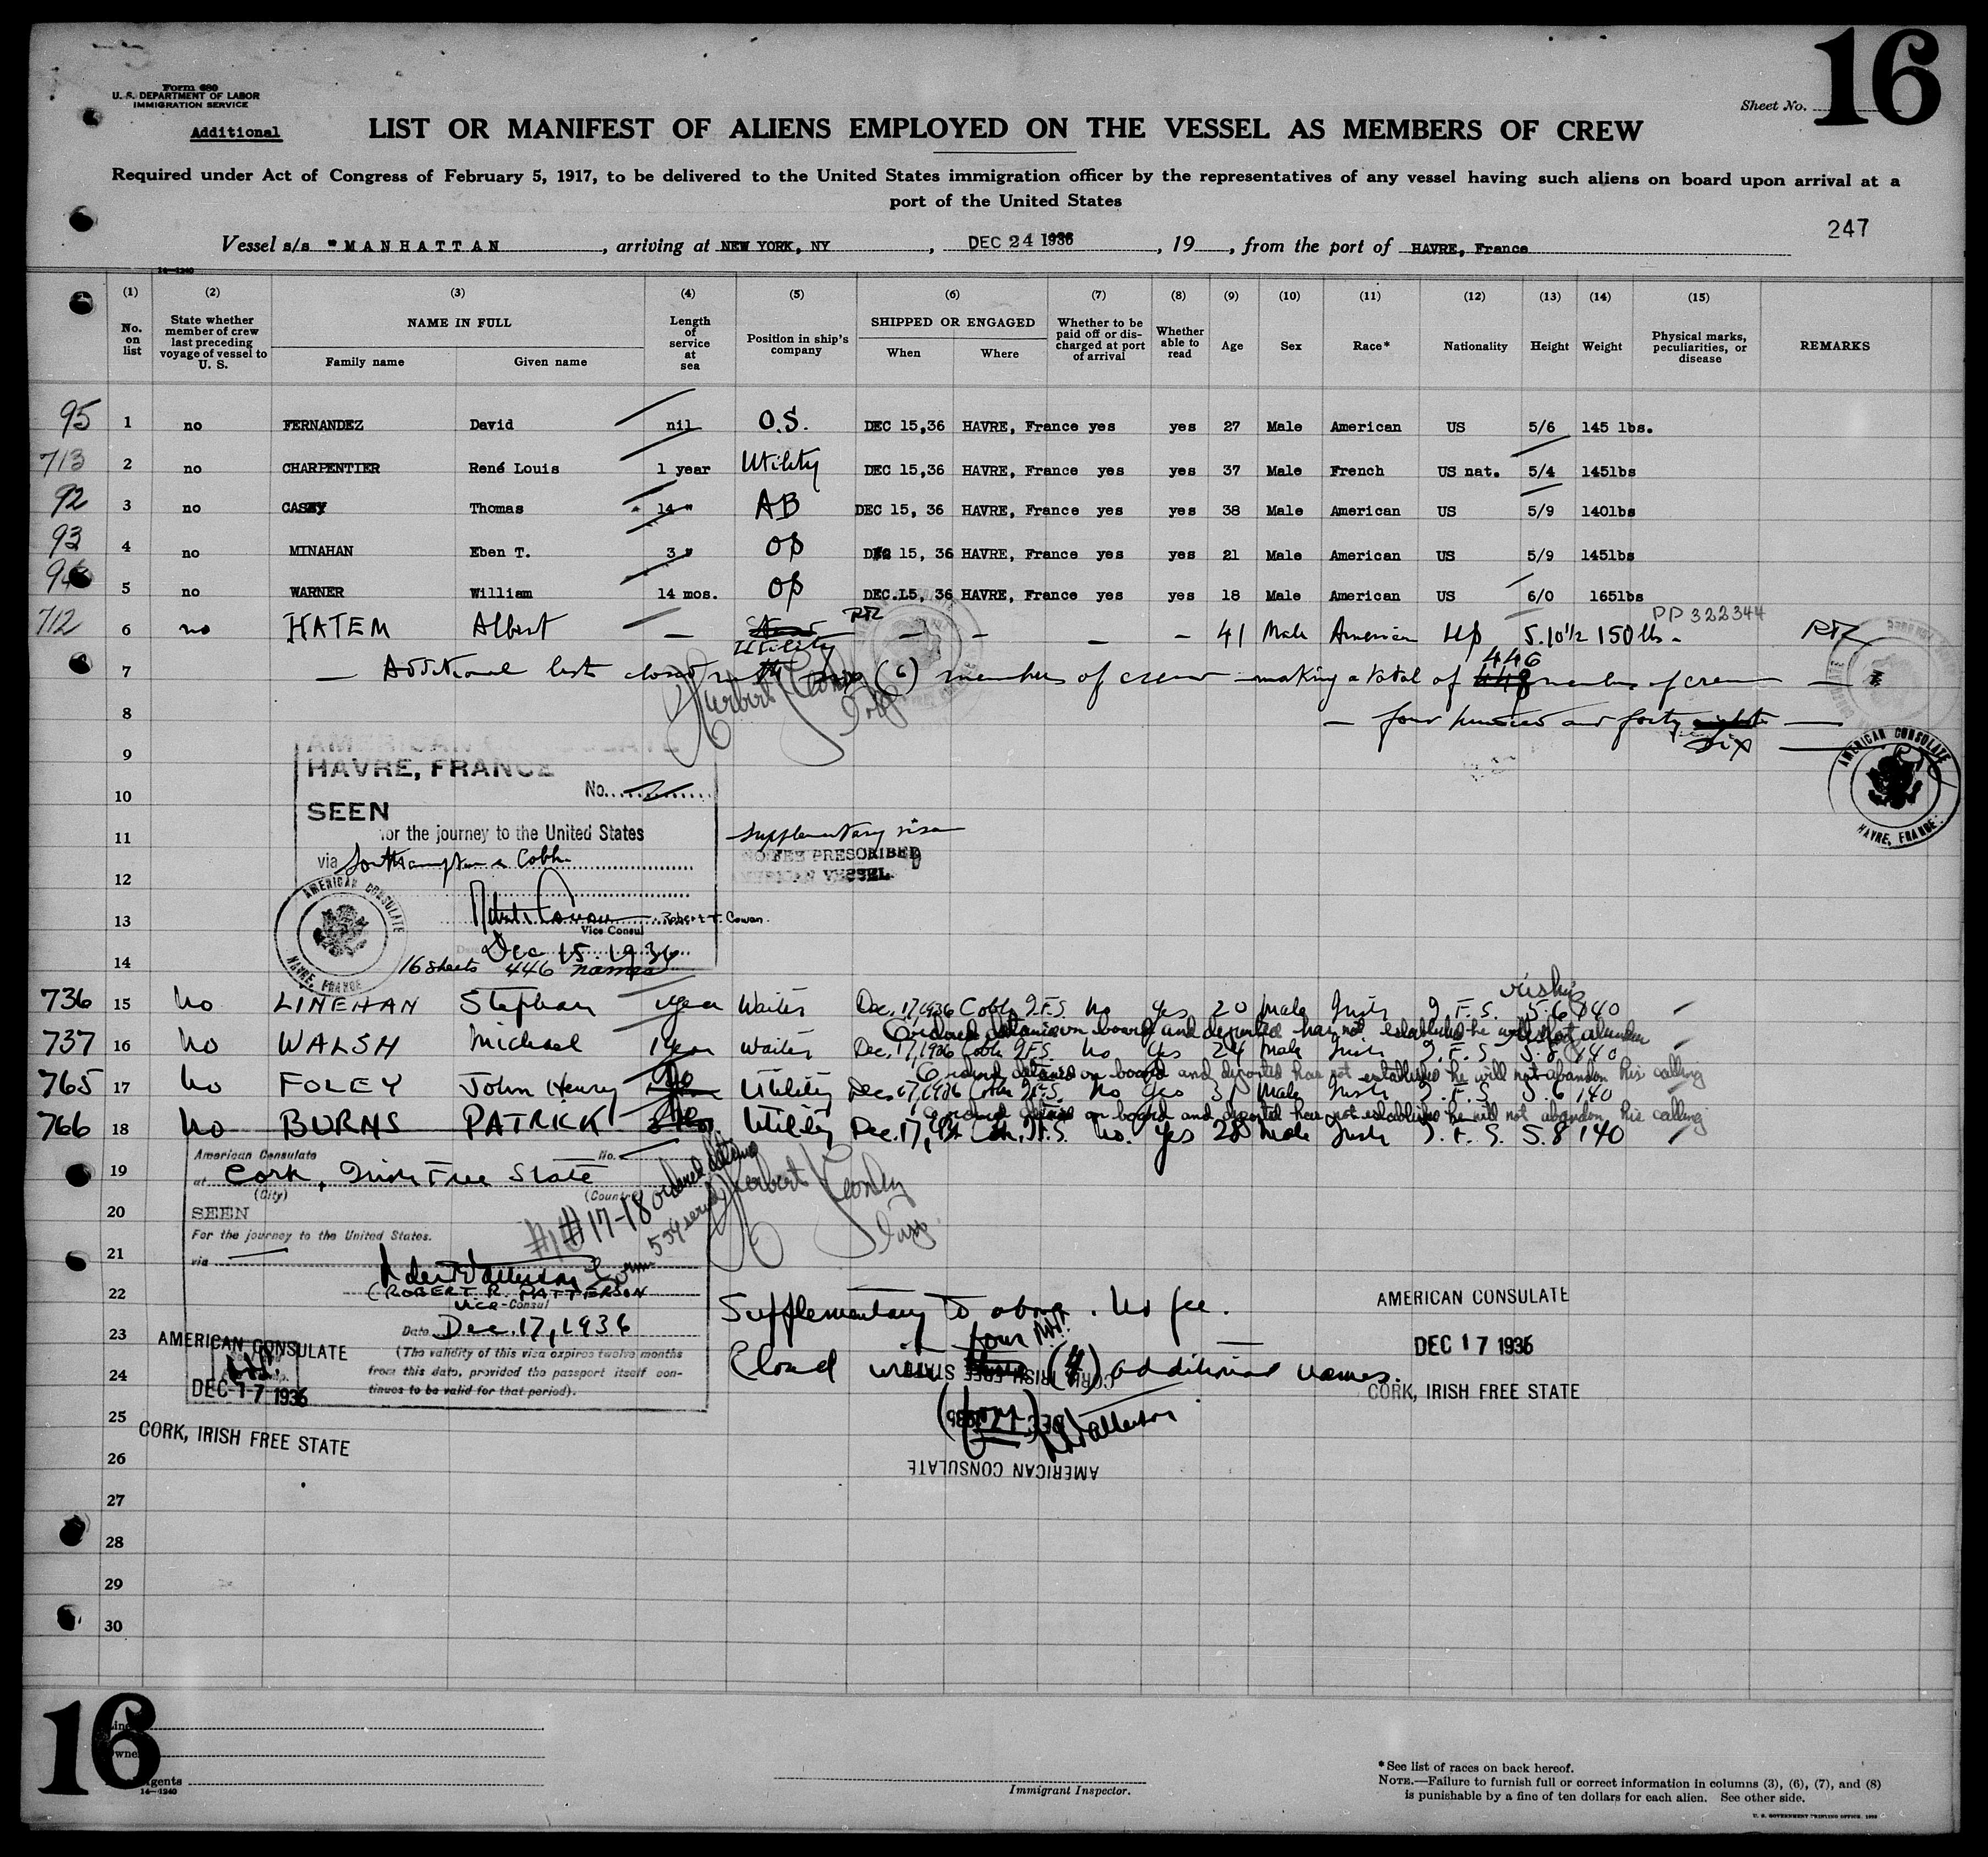 16
Form 680
U. S. DEPARTMENT OF LABOR
IMMIGRATION SERVICE
Sheet No.
Additional
LIST OR MANIFEST OF ALIENS EMPLOYED ON THE VESSEL AS MEMBERS OF CREW
Required under Act of Congress of February 5, 1917, to be delivered to the United States immigration officer by the representatives of any vessel having such aliens on board upon arrival at a
port of the United States
247
Vessel s/s "MANHATTAN, arriving at NEW YORK, NY, DEC 24 1936, 19, from the port of HAVRE, France
14—1240
(1) (2) (3) (4) (5) (6) (7) (8) (9) (10) (11) (12) (13) (14) (15)
No. on list
State whether member of crew last preceding voyage of vessel to U. S.
NAME IN FULL
Family name Given name
Length of service at sea
Position in ship's company
SHIPPED OR ENGAGED
When Where
Whether to be paid off or discharged at port of arrival
Whether able to read
Age Sex Race* Nationality Height Weight
Physical marks, peculiarities, or disease
REMARKS
95 1 no FERNANDEZ David nil O.S. DEC 15,36 HAVRE, France yes yes 27 Male American US 5/6 145 lbs.
713 2 no CHARPENTIER René Louis 1 year Utility DEC 15,36 HAVRE, France yes yes 37 Male French US nat. 5/4 145lbs
92 3 no CASEY Thomas 14 " AB DEC 15, 36 HAVRE, France yes yes 38 Male American US 5/9 140lbs
93 4 no MINAHAN Eben T. 3 " OS DEC 15, 36 HAVRE, France yes yes 21 Male American US 5/9 145lbs
94 5 no WARNER William 14 mos. OS DEC.15, 36 HAVRE, France yes yes 18 Male American US 6/0 165lbs
PP 322344
712 6 no HATEM Albert — Utility — — — — 41 Male American US 5.10½ 150 lbs.
7 — Additional list closed with (6) members of crew making a total of 446 members of crew —
8 — four hundred and forty six —
9
AMERICAN CONSULATE
HAVRE, FRANCE
10 No. 2
SEEN
11 for the journey to the United States
Supplementary visa
via Southampton & Cobh
NO FEE PRESCRIBED
AMERICAN VESSEL
12
13 Robert T. Cowan
Vice Consul
Dec 15 1936
14 16 sheets 446 names
AMERICAN CONSULATE
HAVRE, FRANCE
AMERICAN CONSULATE
HAVRE, FRANCE
736 15 No LINEHAN Stephen 1 year Waiter Dec. 17, 1936 Cobh I.F.S. No Yes 20 Male Irish I. F. S. 5.6 140
Ordered detained on board and deported has not established he will not abandon
737 16 No WALSH Michael 1 year Waiter Dec. 17, 1936 Cobh I.F.S. No Yes 24 Male Irish I. F. S. 5.8 140
Ordered detained on board and deported has not established he will not abandon his calling
765 17 No FOLEY John Henry Utility Dec. 17, 1936 Cobh I.F.S. No Yes Male Irish I. F. S. 5.6 140
Ordered detained on board and deported has not established he will not abandon his calling
766 18 No BURNS PATRICK Utility Dec. 17, Cobh, I.F.S. No. Yes 28 Male Irish I. F. S. 5.8 140
American Consulate No.
19 at Cork, Irish Free State
(City) (Country)
20 SEEN
#17-18 ordered detained
For the journey to the United States.
21 via
(ROBERT R. PATTERSON
22 Vice-Consul
Supplementary to above. No fee.
23 Date Dec. 17, 1936
(The validity of this visa expires twelve months from this date, provided the passport itself continues to be valid for that period).
Closed with four (4) additional names.
24
AMERICAN CONSULATE
DEC 17 1936
CORK, IRISH FREE STATE
AMERICAN CONSULATE
DEC 17 1936
CORK, IRISH FREE STATE
25
(four) RR Patterson
CORK, IRISH FREE STATE
DEC 17 1936
AMERICAN CONSULATE
26
27
28
29
30
16
Line
Owners
Agents
14—1240
Immigrant Inspector.
*See list of races on back hereof.
NOTE.—Failure to furnish full or correct information in columns (3), (6), (7), and (8)
is punishable by a fine of ten dollars for each alien. See other side.
U. S. GOVERNMENT PRINTING OFFICE